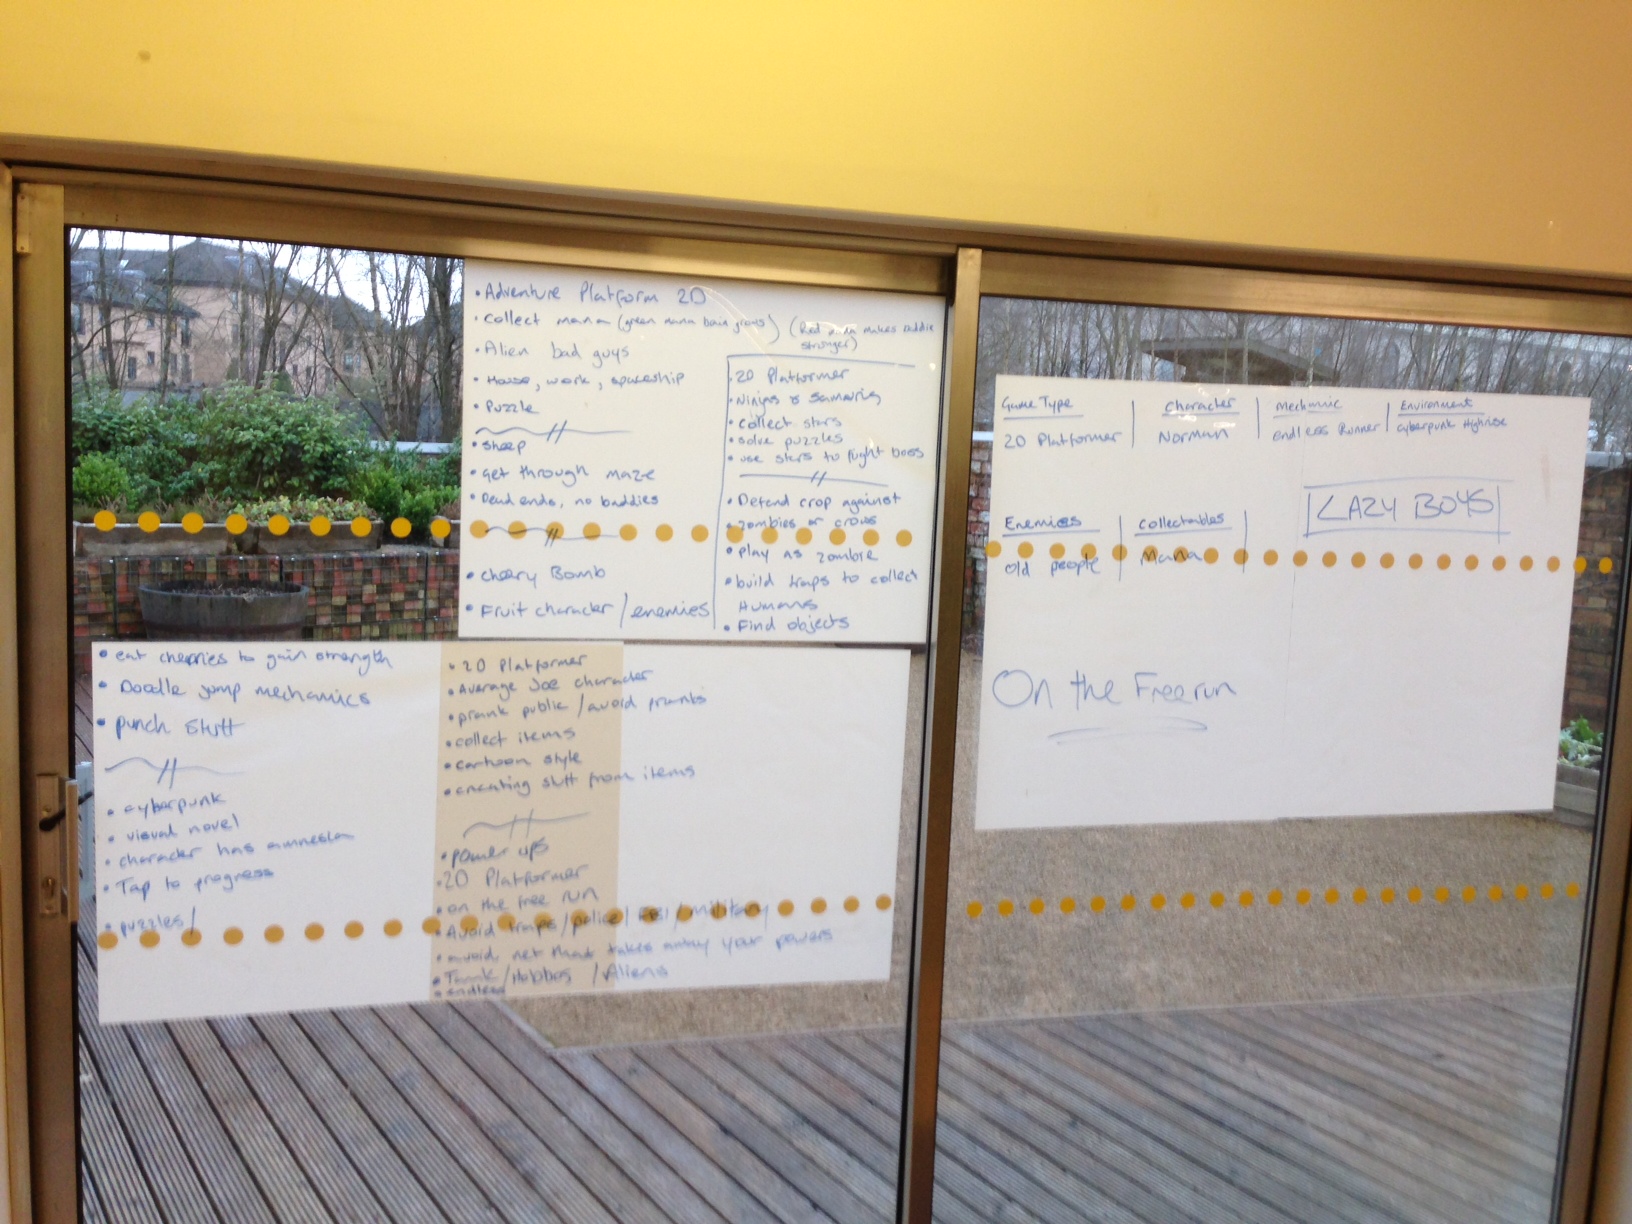 • Adventure Platform 2D
• Collect mana (green mana brain grows) (Red mana makes baddie
stronger)
• Alien bad guys
• House, work, spaceship
• Puzzle
• Sheep
• Get through maze
• Dead ends, no baddies
• cherry Bomb
• Fruit character / enemies
• 2D Platformer
• Ninjas & Samauris
• collect stars
• solve puzzles
• use stars to fight boss
• Defend crop against
• zombies or crows
• play as zombie
• build traps to collect
Humans
• Find objects
• eat cherries to gain strength
• Doodle jump mechanics
• punch stuff
• cyberpunk
• visual novel
• character has amnesia
• Tap to progress
• puzzles /
• 2D Platformer
• Average Joe character
• prank public / avoid pranks
• collect items
• cartoon style
• creating stuff from items
• power ups
• 2D Platformer
• on the free run
• Avoid traps / police / FBI / military
• avoid net that takes away your powers
• Tank / Hobbos / Aliens
• endless
Game Type | Character | Mechanic | Environment
2D Platformer | Norman | endless Runner | Cyberpunk Highrise
LAZY BOYS
Enemies | Collectables |
Old people | Mana
On the Freerun